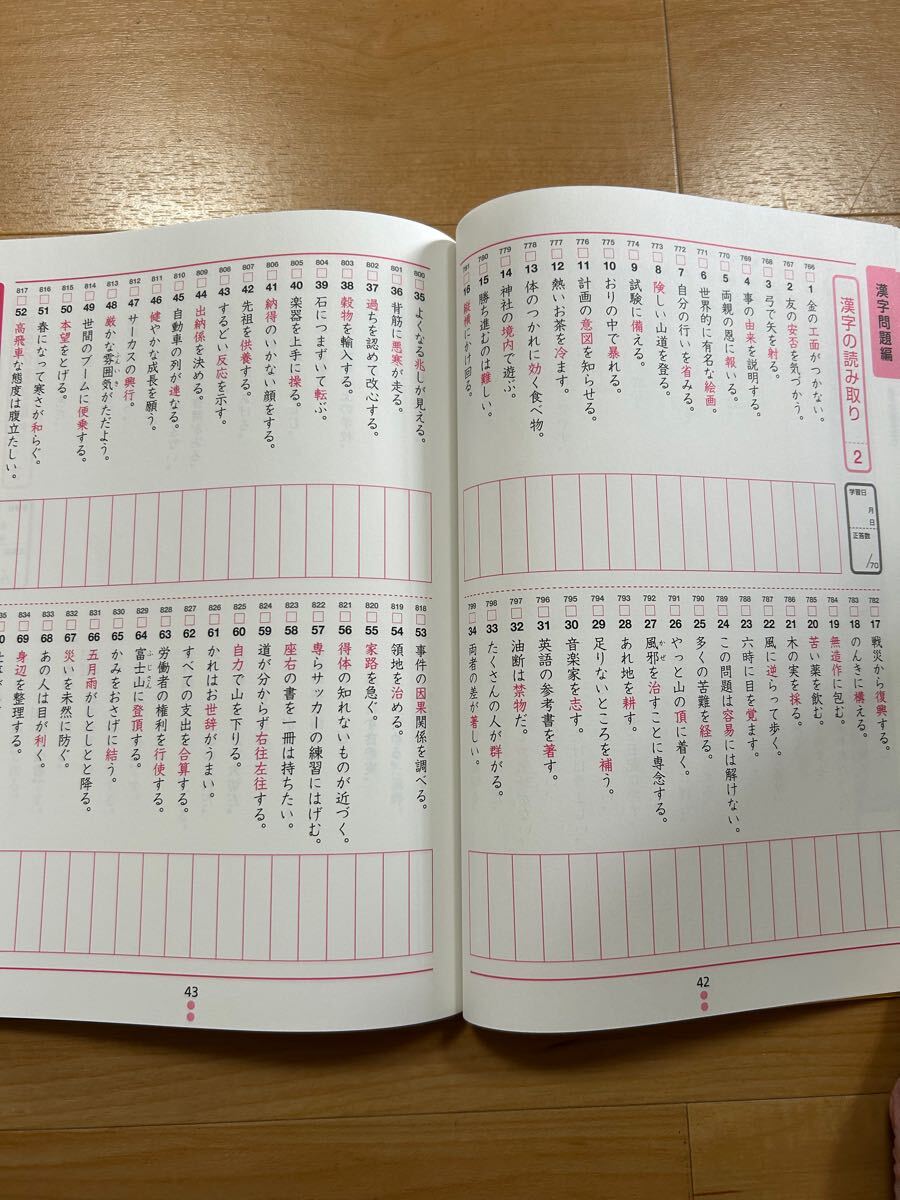 漢字問題編
漢字の読み取り 2
学習日 月 日
正答数 /70
766 1 金の工面がつかない。
767 2 友の安否を気づかう。
768 3 弓で矢を射る。
769 4 事の由来を説明する。
770 5 両親の恩に報いる。
771 6 世界的に有名な絵画。
772 7 自分の行いを省みる。
773 8 険しい山道を登る。
774 9 試験に備える。
775 10 おりの中で暴れる。
776 11 計画の意図を知らせる。
777 12 熱いお茶を冷ます。
778 13 体のつかれに効く食べ物。
779 14 神社の境内で遊ぶ。
780 15 勝ち進むのは難しい。
781 16 縦横にかけ回る。
782 17 戦災から復興する。
783 18 のんきに構える。
784 19 無造作に包む。
785 20 苦い薬を飲む。
786 21 木の実を採る。
787 22 風に逆らって歩く。
788 23 六時に目を覚ます。
789 24 この問題は容易には解けない。
790 25 多くの苦難を経る。
791 26 やっと山の頂に着く。
792 27 風邪を治すことに専念する。
かぜ
793 28 あれ地を耕す。
794 29 足りないところを補う。
795 30 音楽家を志す。
796 31 英語の参考書を著す。
797 32 油断は禁物だ。
798 33 たくさんの人が群がる。
799 34 両者の差が著しい。
42
800 35 よくなる兆しが見える。
801 36 背筋に悪寒が走る。
802 37 過ちを認めて改心する。
803 38 穀物を輸入する。
804 39 石につまずいて転ぶ。
805 40 楽器を上手に操る。
806 41 納得のいかない顔をする。
807 42 先祖を供養する。
808 43 するどい反応を示す。
809 44 出納係を決める。
810 45 自動車の列が連なる。
811 46 健やかな成長を願う。
812 47 サーカスの興行。
813 48 厳かな雰囲気がただよう。
ふんいき
814 49 世間のブームに便乗する。
815 50 本望をとげる。
816 51 春になって寒さが和らぐ。
817 52 高飛車な態度は腹立たしい。
818 53 事件の因果関係を調べる。
819 54 領地を治める。
820 55 家路を急ぐ。
821 56 得体の知れないものが近づく。
822 57 専らサッカーの練習にはげむ。
823 58 座右の書を一冊は持ちたい。
824 59 道が分からず右往左往する。
825 60 自力で山を下りる。
826 61 かれはお世辞がうまい。
827 62 すべての支出を合算する。
828 63 労働者の権利を行使する。
829 64 富士山に登頂する。
ふじさん
830 65 かみをおさげに結う。
831 66 五月雨がしとしとと降る。
832 67 災いを未然に防ぐ。
833 68 あの人は目が利く。
834 69 身辺を整理する。
43